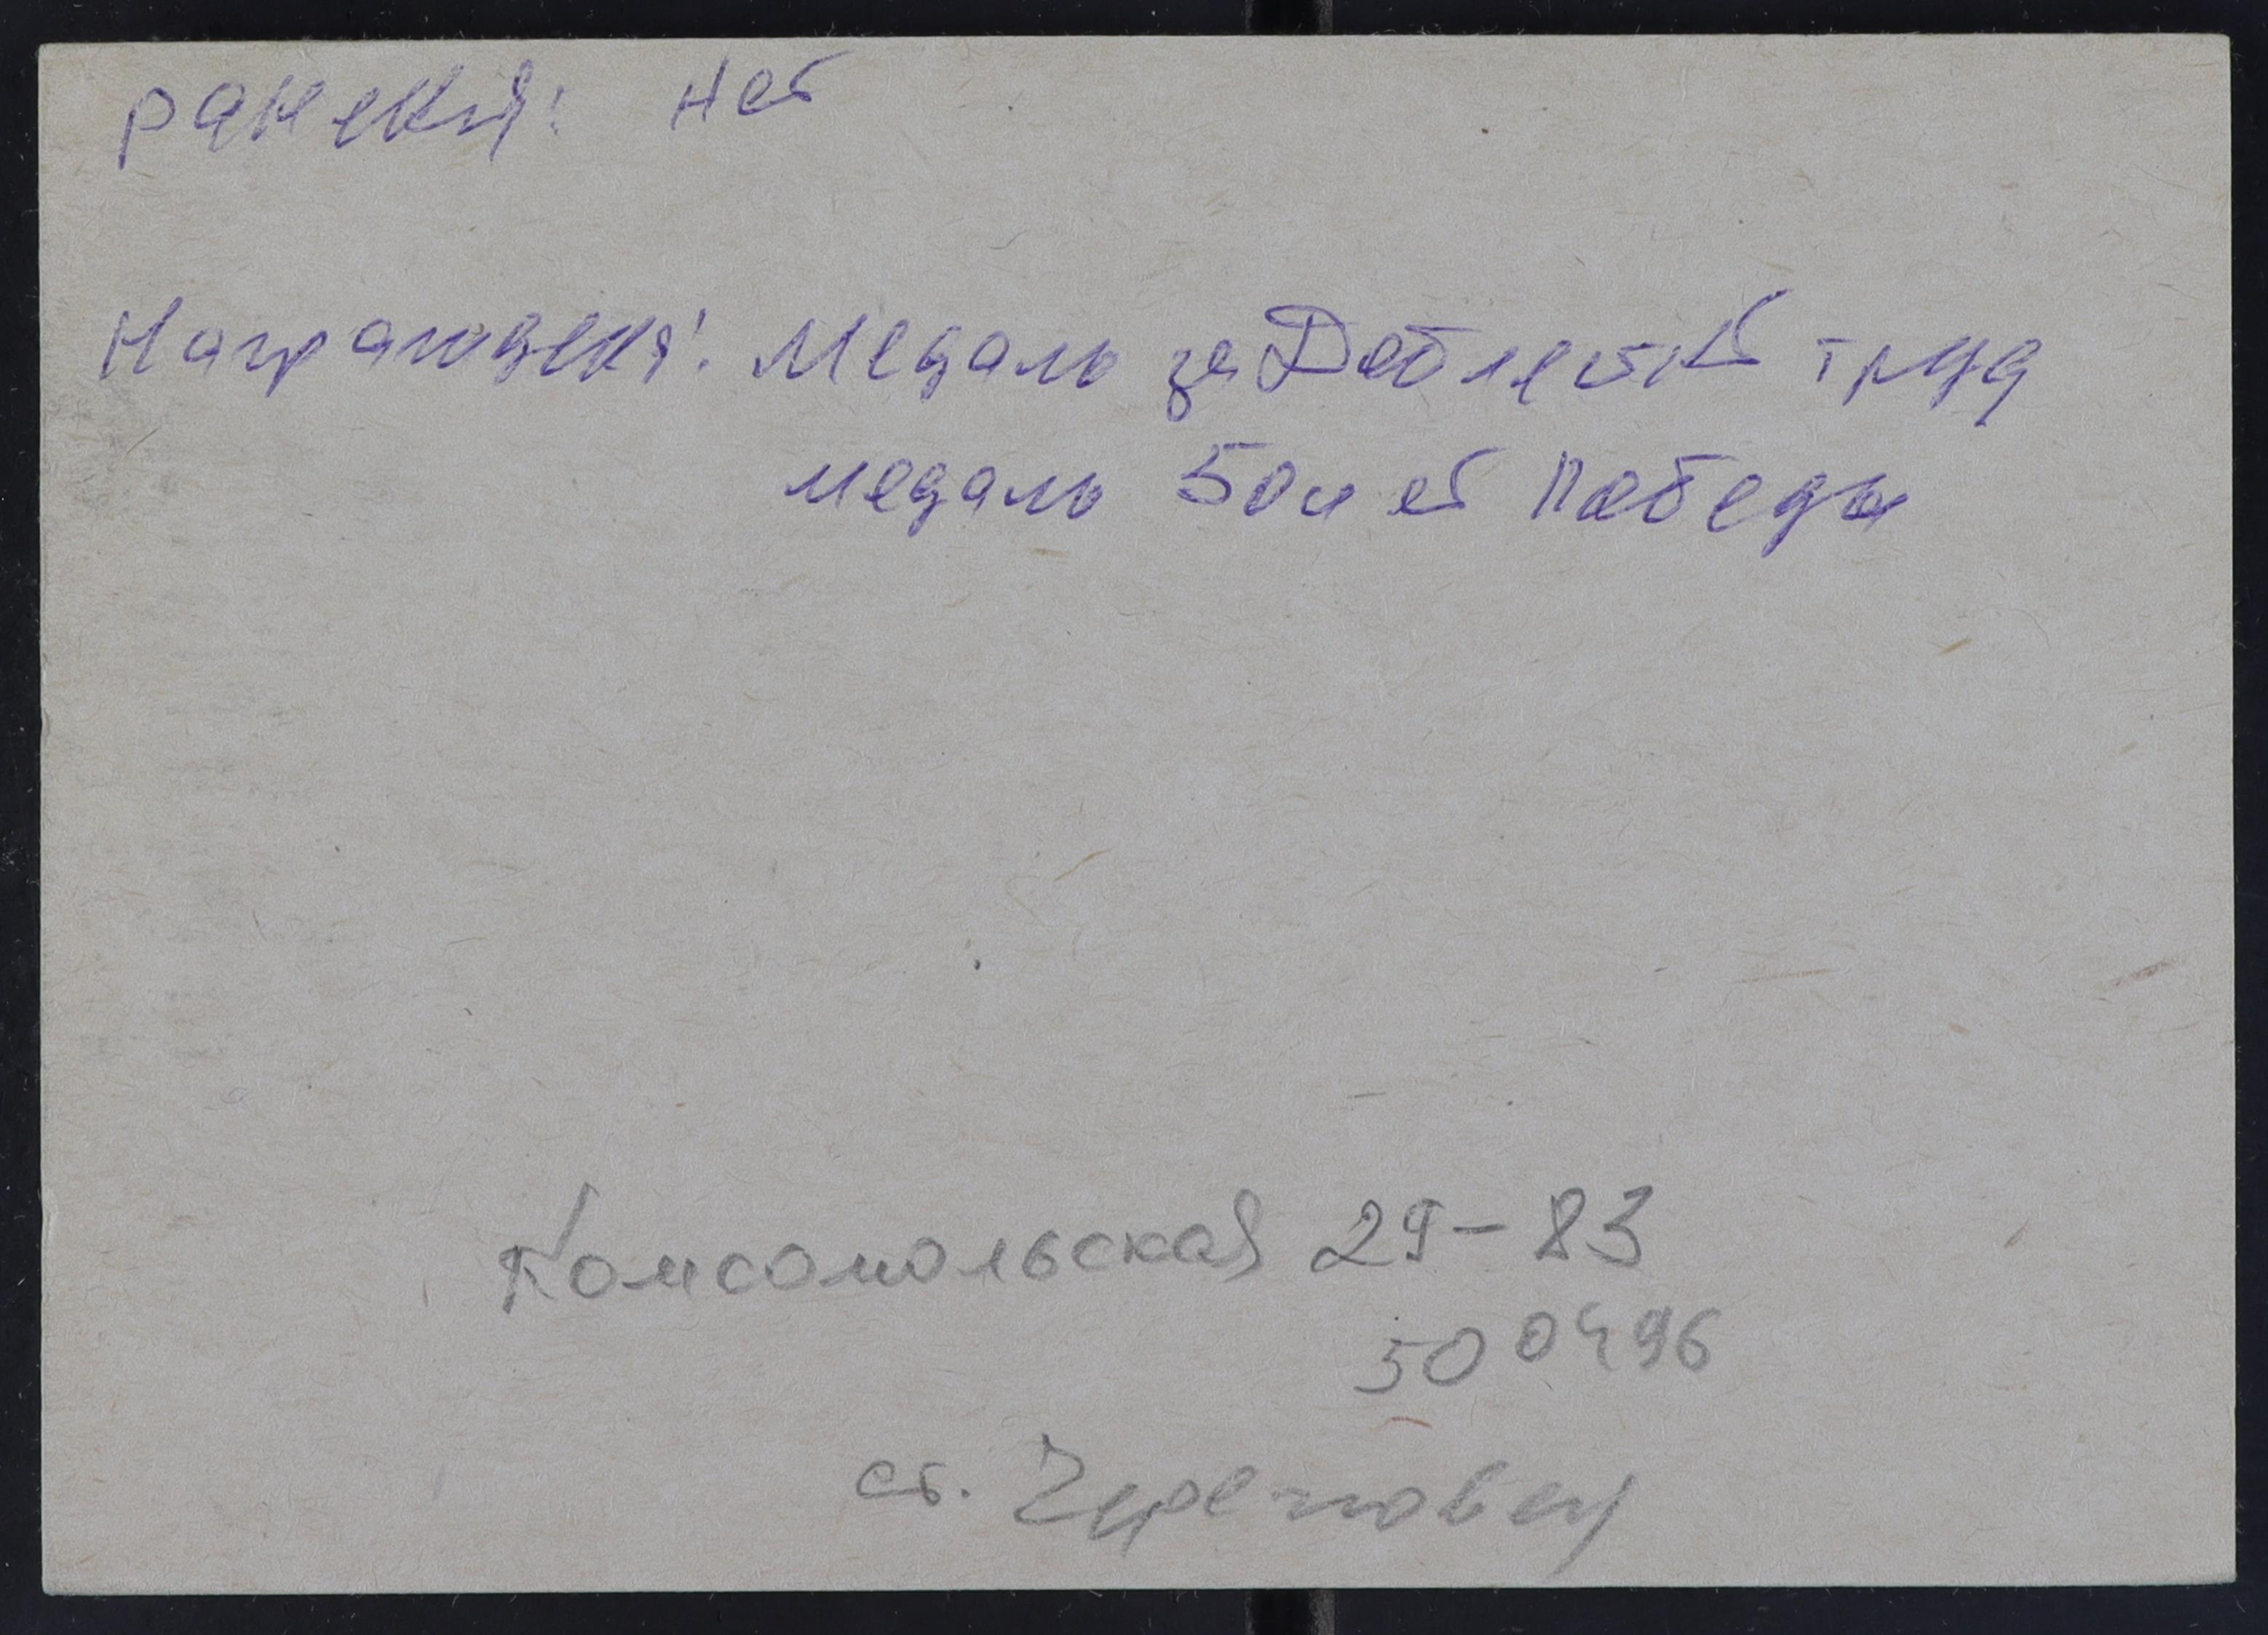 ранения: нет
Награждения: Медаль за Доблестный труд
медаль 50 лет Победы
Комсомольская 29-83
500496
ст. Череповец